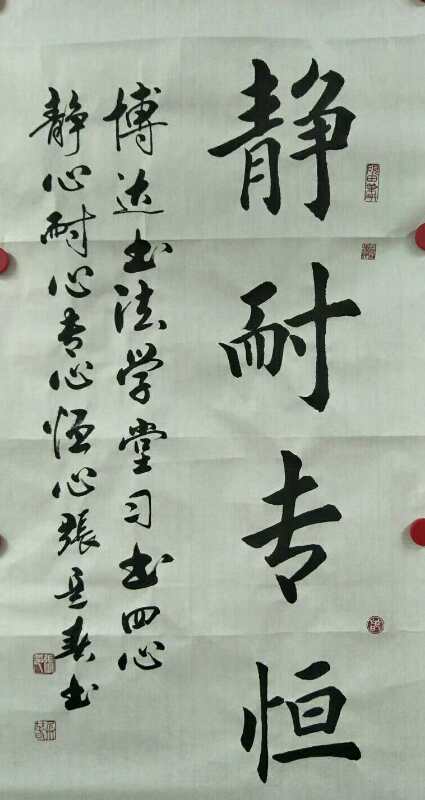 静耐专恒
博达书法学堂习书四心
静心耐心专心恒心張
书